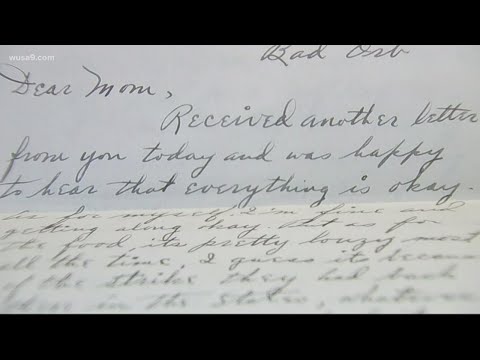 wusa9.com
Bad Orb
Dear Mom,
Received another letter
from you today and was happy
to hear that everything is okay.
As for myself, I'm fine and
getting along okay, but as for
the food, its pretty lousy most
all the time, I guess its because
of the strike they had back
in the States, whatever